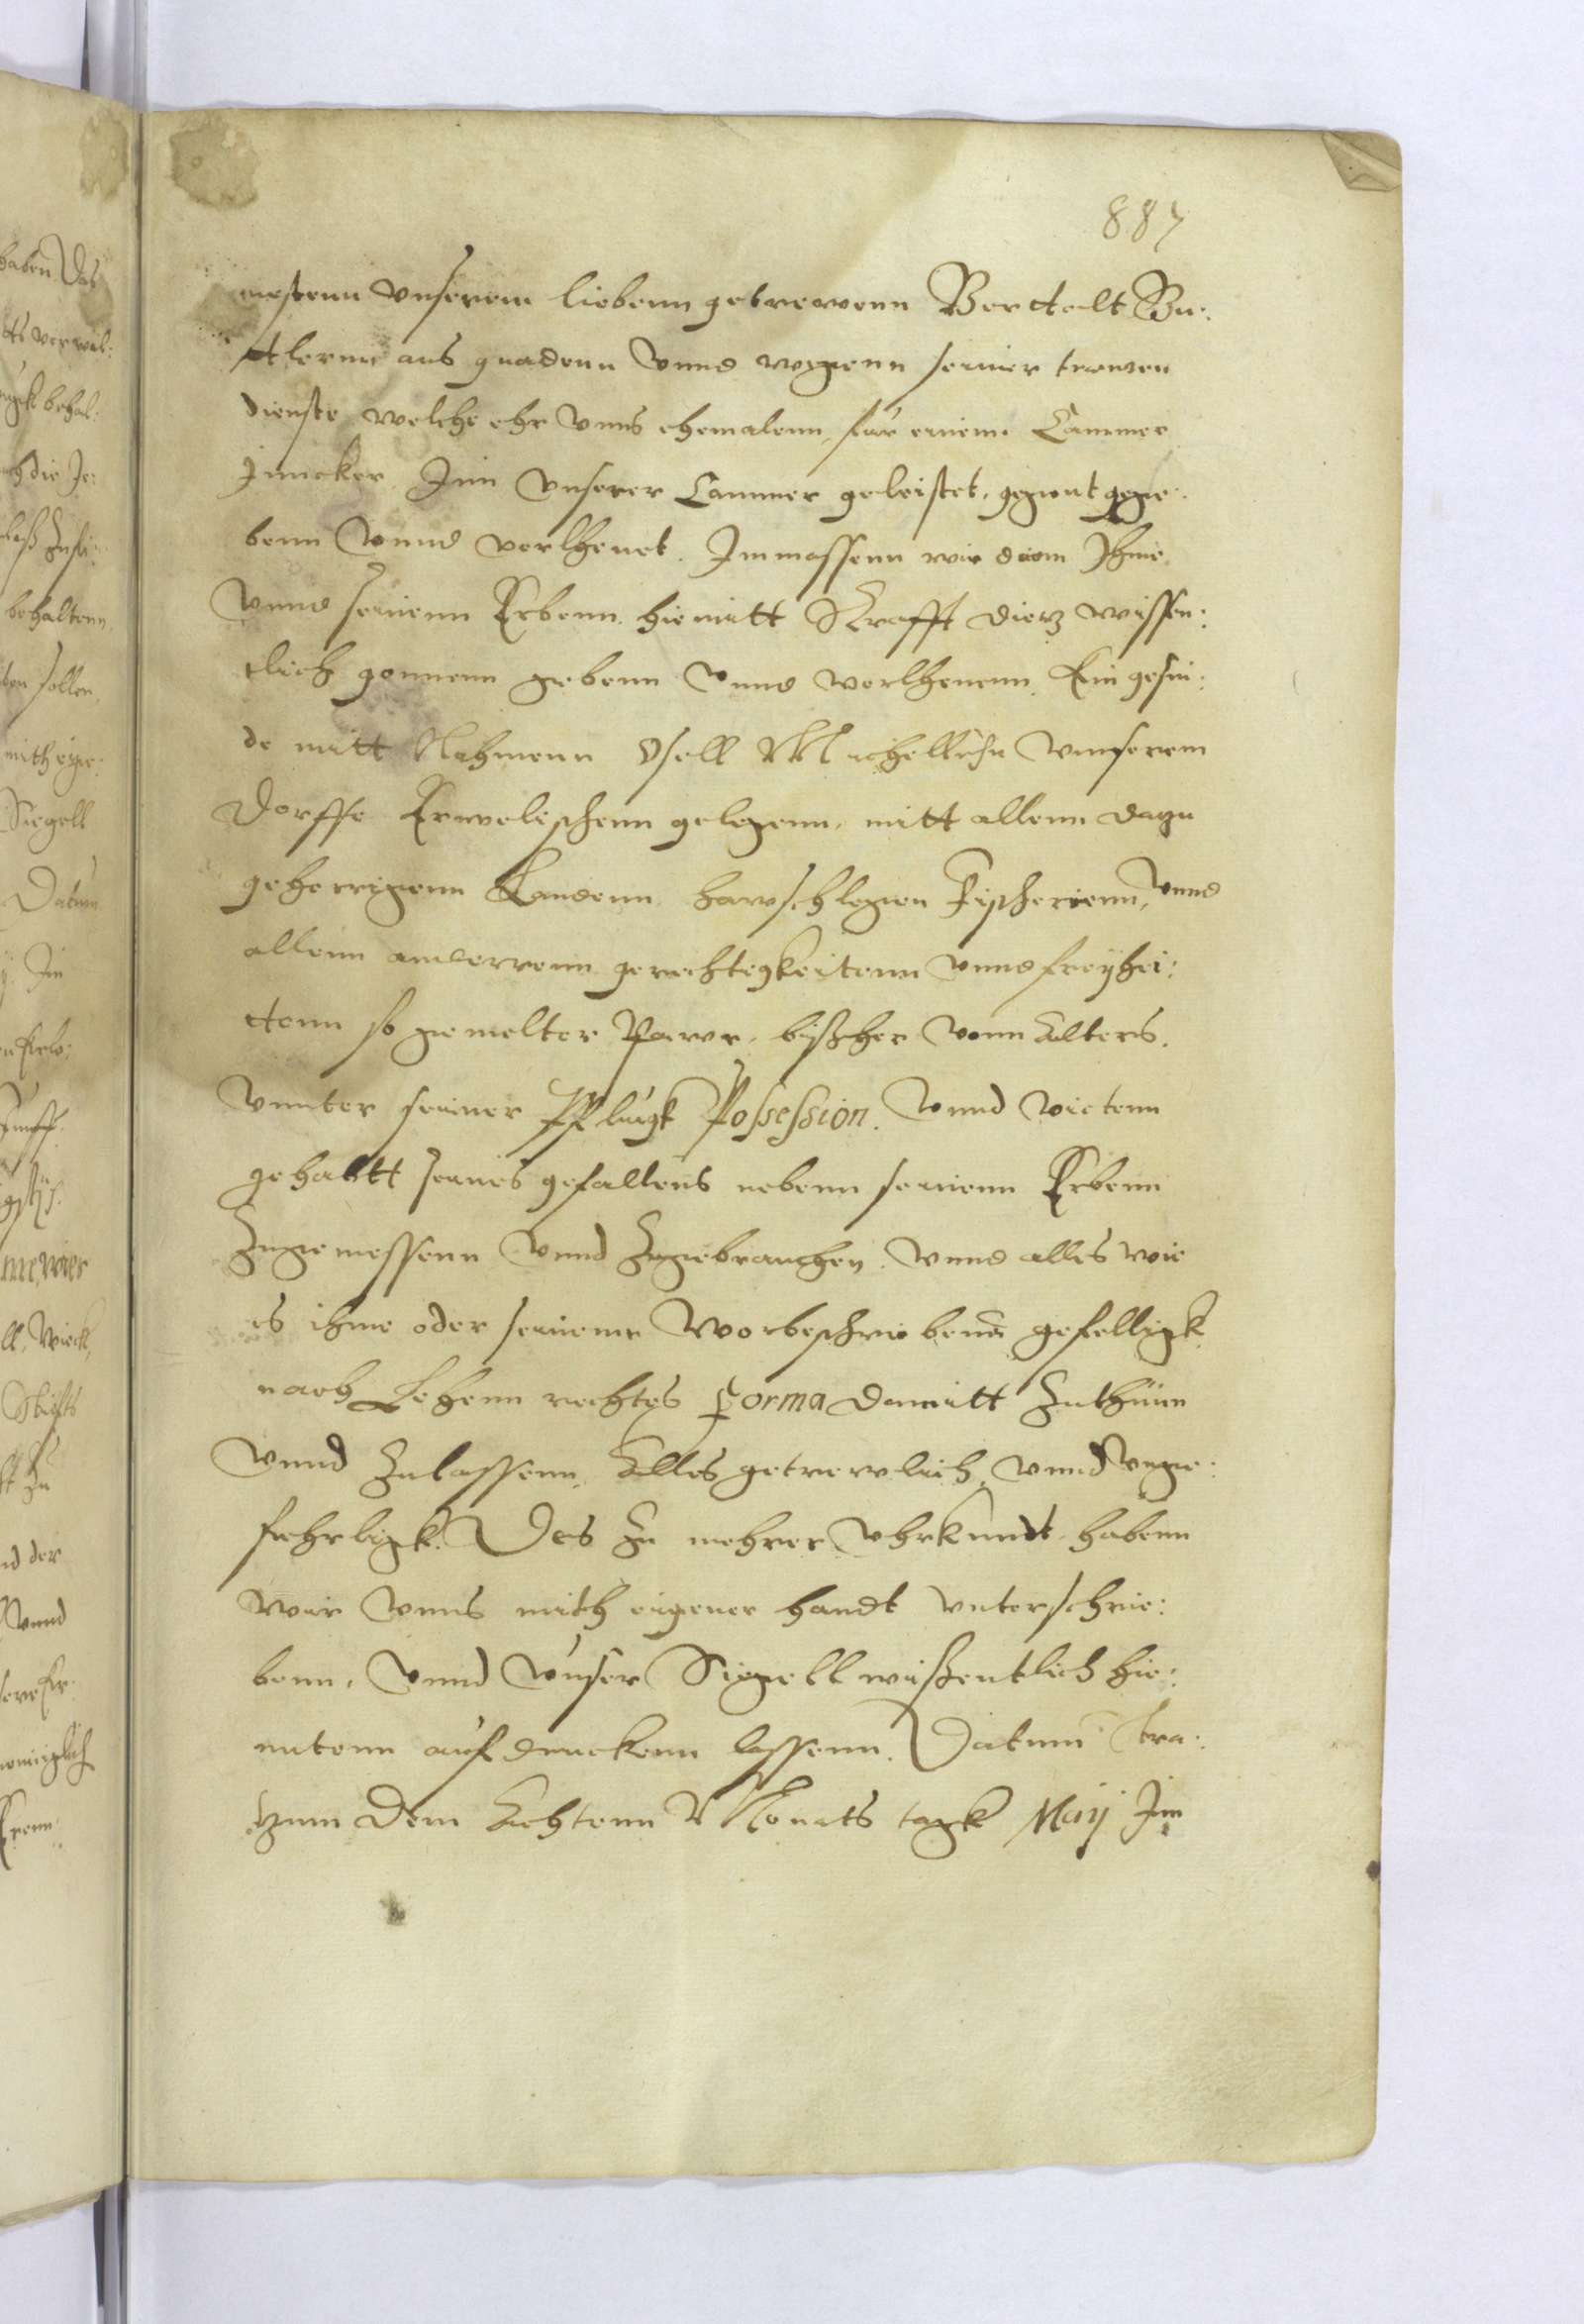 887
nestenn vnserem liebenn getrewenn Bertolt Bu:
ttlernn aus gnadenn vnnd wegenn seiner trewen
dienste welche ehr vnns ehemalenn für einenn Cammer
Juncker Jnn vnserer Cammer geleistet, gegont gege:
benn vnnd verlhenet. Jnmassenn wir dann Jhme
vnnd seinenn Erbenn hiemitt Krafft dietz wissen:
tlich gonnenn gebenn vnnd verlhenenn Ein gesin:
de mitt Nahmenn Vsell Michell Jn vnnserem
Dorffe gelegenn, mitt allenn dazu
gehorrigenn Landenn hawschlegen Fischerienn, vnnd
allenn anderrenn gerechtigkeitenn vnnd freyhei:
ttenn so gemelter Pawr, bißher vonn Alters
vnnter seiner Pflugk Possession. vnnd
gehabtt seines gefallens nebenn seinenn Erbenn
Zugemessenn vnnd Zugebrauchen. vnnd alles wie
es ihme oder seinenn Vorbeschriebenen gefelligk
nach Lehenn rechtes Forma damitt Zuthunn
vnnd Zulassenn, Alles getrewlich, vnnd vnge:
fehrligk. Des Zu mehrer vhrkundt habenn
wir vnns mith eigener handt vnterschrie:
benn, vnnd vnser Siegell wißentlich hie:
untenn aufdruckenn lassenn. Datum
denn Achtenn Monats tagk Maij Jm